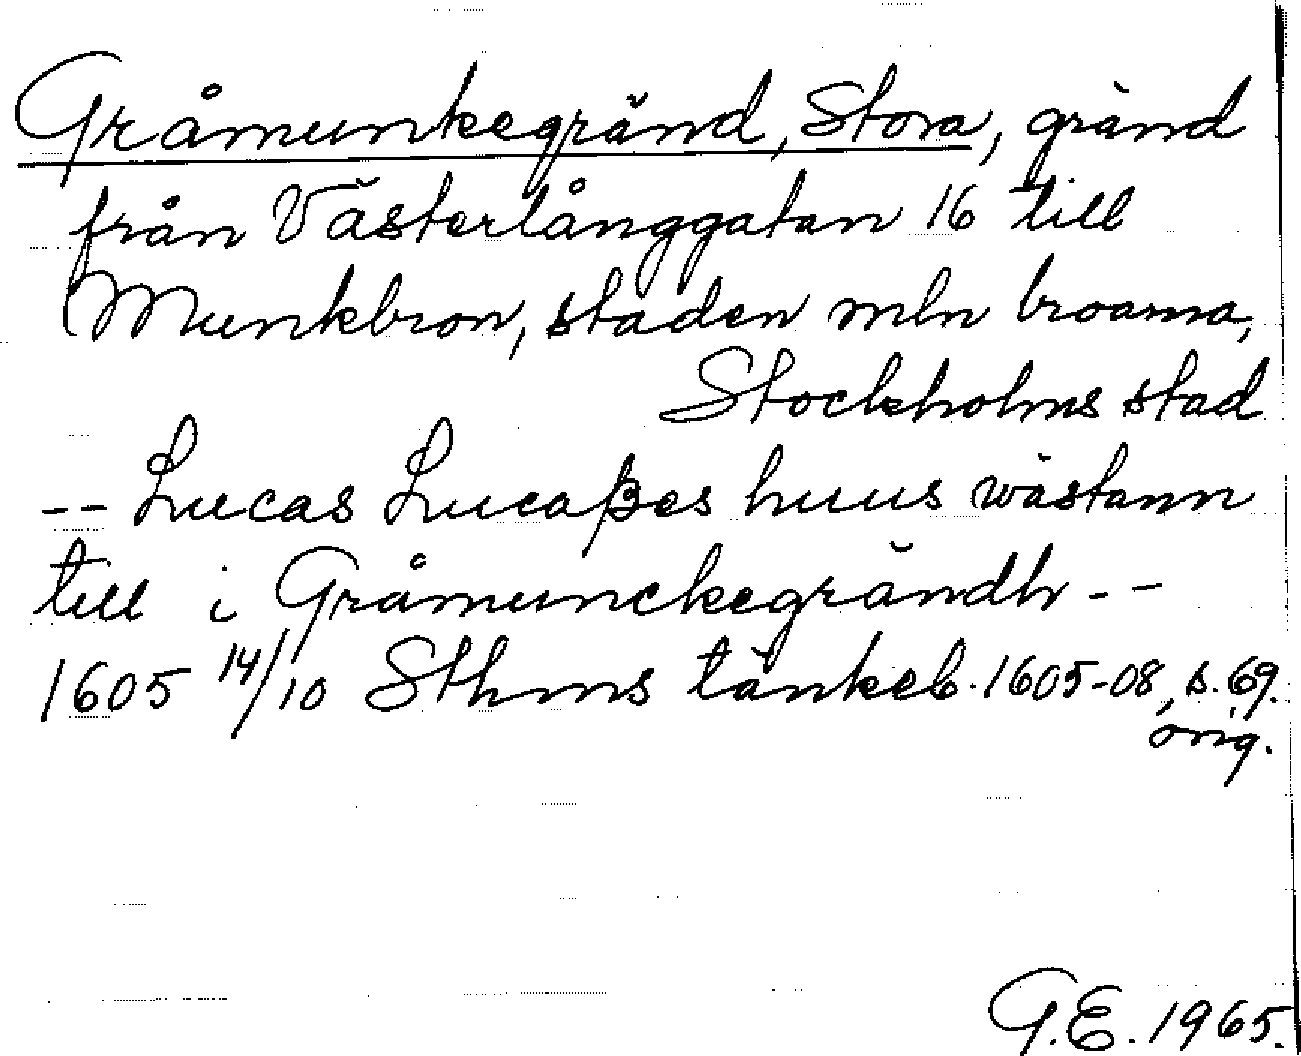 Gråmunkegränd, Stora, gränd
från Västerlånggatan 16 till
Munkbron, staden mln broarna,
Stockholms stad
-- Lucas Lucaßes huus wästann
till i Gråmunckegrändh --
1605 14/10 Sthms tänkeb. 1605-08, s. 69.
orig.
G.E. 1965.